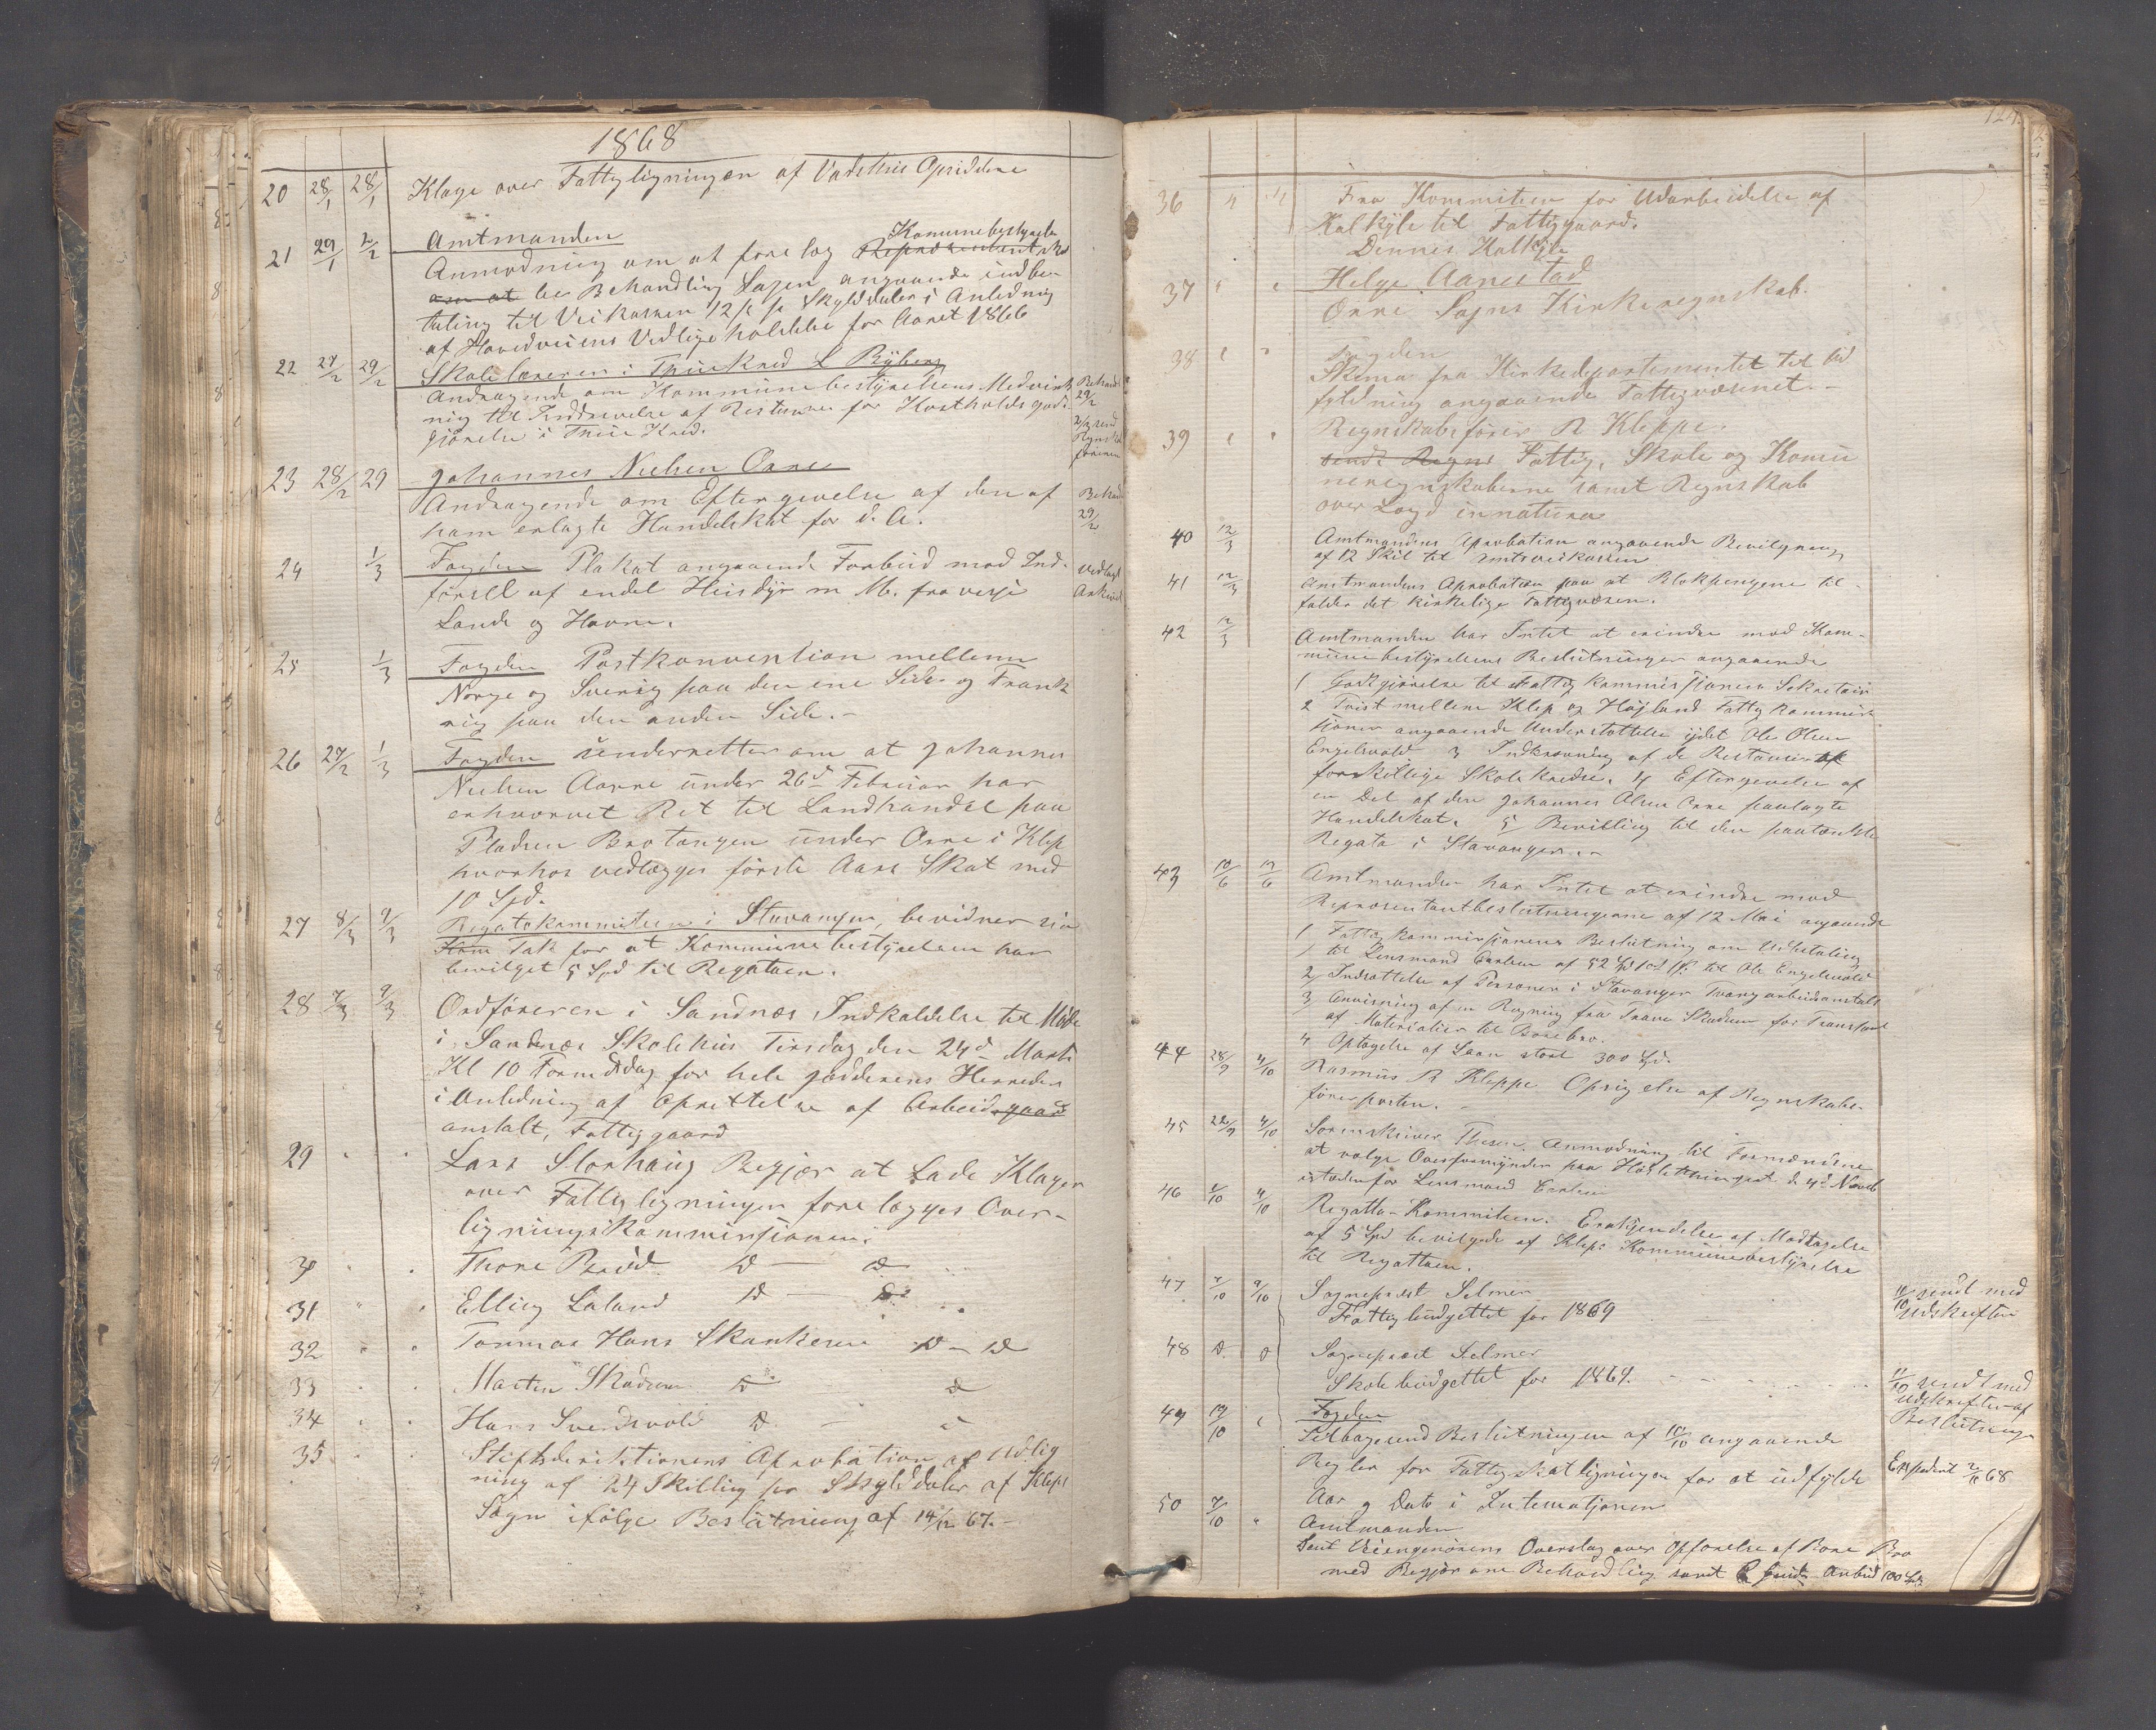 1868
20 28/1 28/1 Klage over Fattigligningen af
21 29/1 2/2 Amtmanden
Kommunebestyrelse
Anmodning om at fore lag Repræsentantskab
om at tee Behandling Sagen angaaende indbe-
taling til Veikassen 12 s pr Skylddaler i Anledning
af Hovedveiens Vedligeholdelse for Aaret 1866
22 27/2 29/2 Skolelæreren i Kred L Ryberg
Andragende om Kommunebestyrelsens Medvirk Behandl
ning til Inddrivelse af Restancer for Kostholds godt- 29/2
gjørelse i Kred.
23 28/2 29 Johannes Nielsen Orre
Andragende om Eftergivelse af den af Behandl
ham erlagte Handelskat for d. A. 29/2
24 1/3 Fogden Plakat angaaende Forbud mod Ind- vedlagt
førsel af endel Husdyr m M. fra visse Arkivet
Lande og Havne.
25 1/3 Fogden Postkonvention mellem
Norge og Sverig paa den ene Side og Frank
rig paa den anden Side.-
26 27/2 1/3 Fogden underretter om at Johannes
Nielsen Aarre under 26d Februar har
erhvervet Ret til Landhandel paa
Pladsen Brotangen under Orre i Klep
hvorhos vedlægges første Aars Skat med
10 Spd.
27 8/3 9/3 Regatakommiteen i Stavanger, bevidner sin
Kom Tak for at Kommunebestyrelsen har
bevilget 5 Spd til Regataen.
28 7/3 9/3 Ordføreren i Sandnæs Indkaldelse til Møde
i Sandnæs Skolehus Tirsdag den 24d Marts
Kl 10 Formiddag for hele Jædderens Herreder
i Anledning af Oprettelse af Arbeidsgaard
anstalt, Fattiggaard
29 Lars Storhaug Begjær at Lade Klagen
over Fattigligningen forelægges Over-
ligningskommissionen.
30 Thore Braud D — D
31 Elling Laland D — D
32 Tommas Hans Skankesen D — D
33 Martin Skadsem D D
34 Hans Svendsvold D — "
35 Stiftsdirektionens Aprobation af Udlig
ning af 24 Skilling pr Skylddaler af Klep
Sogn ifølge Beslutning af 14/12 67.-
124
36 " " Fra Kommiteen for Udarbeidelse af
Kalkyle til Fattiggaard.
Dennes Kalkyle
37 Helge Aanestad
Orre Sogns Kirkeregnskab.
38 Fogden
Skema fra Kirkedepartementet til Ud
fyldning angaaende Fattigvæsenet.-
39 Regnskabsfører R Kleppe.
sendt Regns Fattig, Skole og Komu
neregnskaberne samt Regnskab
over Lagd innatura
40 12/3 Amtmandens Aprobation angaaende Bevilgning
af 12 Skil til Amtsveikassen
41 12/3 Amtmandens Aprobation paa at Blokpengene til
falder det kirkelige Fattigvæsen.
42 12/3 Amtmanden har Intet at erindre mod Kom-
munebestyrelsens Beslutninger angaaende
1 Godtgjørelse til Fattigkommissionens Sekretair
2 Tvist mellem Klep og Højland Fattigkommis
sioner angaaende Understøttelse ydet Ole Olsen
Engelsvold 3 Inddrivning af de Restancer af
forskillige Skolekredse. 4 Eftergivelse af
en Del af den Johannes Olsen Orre paalagte
Handelskat. 5 Bevilling til den paatænkte
Regata i Stavanger.-
43 10/6 12/6 Amtmanden har Intet at erindre mod
Repræsentantbeslutningerne af 12 Mai angaaende
1 Fattigkommissionens Beslutning om Udbetaling
til Lensmand af 52 Spd til Ole Engelsvold
2 Indsættelse af Personer i Stavanger Tvangsarbeidsanstalt
3 Anvisning af en Regning fra Skadsem for Transport
af Materialier til Borebro.
4 Optagelse af Laan stort 300 Spd.
44 28/9 4/10 Rasmus R Kleppe Opsigelse af Regnskabs-
førerposten.
45 22/9 4/10 Sorenskriver Thesen. Anmodning til Formændene
at vælge Overformynder paa Høsttinget d. 4d Novb
istedenfor Lensmand
46 2/10 4/10 Regatta-Kommiteen. Erkjendelse af Modtagelse
af 5 Spd bevilgede af Kleps Kommunebestyrelse
til Regattaen.
47 7/10 9/10 Sogneprest Selmer
Fattigbudgettet for 1869 11/10 sendt med
Udskriften
48 D D Sogneprest Selmer
Skolebudgettet for 1869. 11/10 sendt med
Udskriften af
Beslutninge
49 19/10 Fogden
Tilbagesend Beslutningen af 10/10 angaaende
Regler for Fattigskatligningen for at udfylde Expederet 2/11 68
Aar og Dato i
50 7/10 " Amtmanden
Sent Veiingenørens Overslag over Opførelse af Bore Bro
med Begjær om Behandling samt Anbud 100 Spd